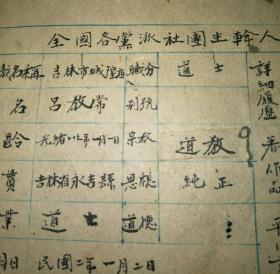 全國各黨派社團主幹人
名稱 吉林市城隍廟 職分 道士 詳細履歷
名 呂教常 別號
齡 光緒 年 月一日 宗教 道教
貫 吉林省永吉縣 思想 純正
業 道士 道德
民國二年一月二日